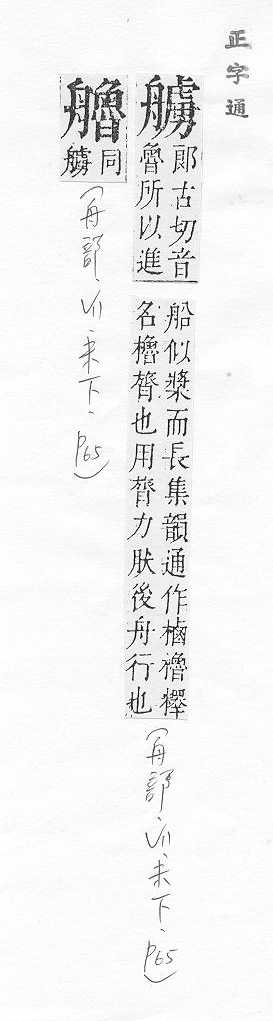 正字通
艣
郎古切音
魯所以進
船似槳而長集韻通作樐櫓釋
名櫓膂也用膂力肰後舟行也
(舟部、未下、P65)
艪
同
艣
(舟部、未下、P65)